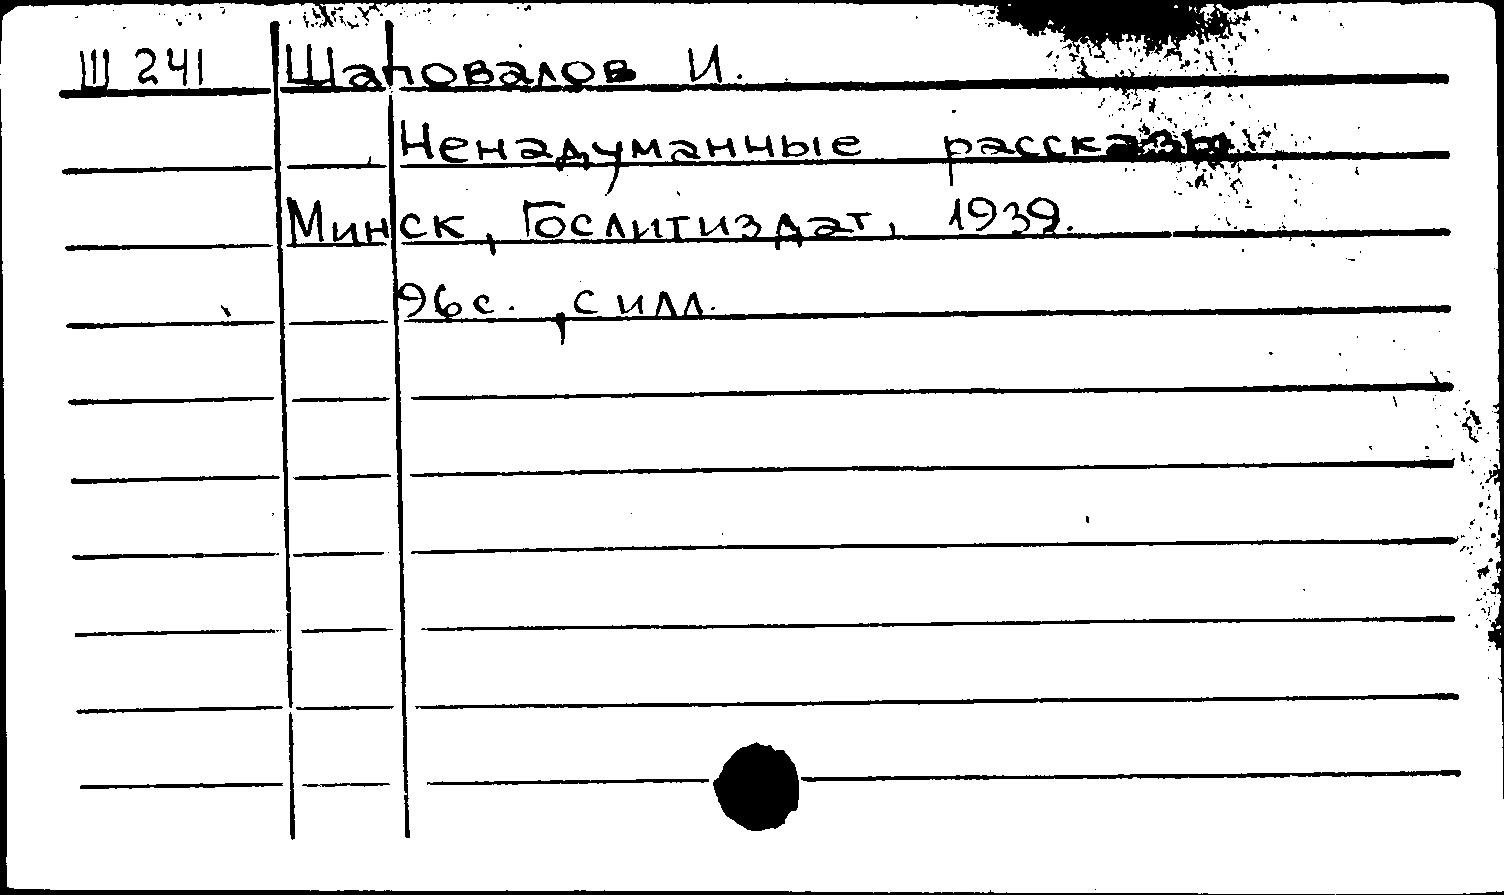 Ш 241 Шаповалов И.
Ненадуманные рассказы
Минск, Гослитиздат, 1939.
96 с. , с илл.